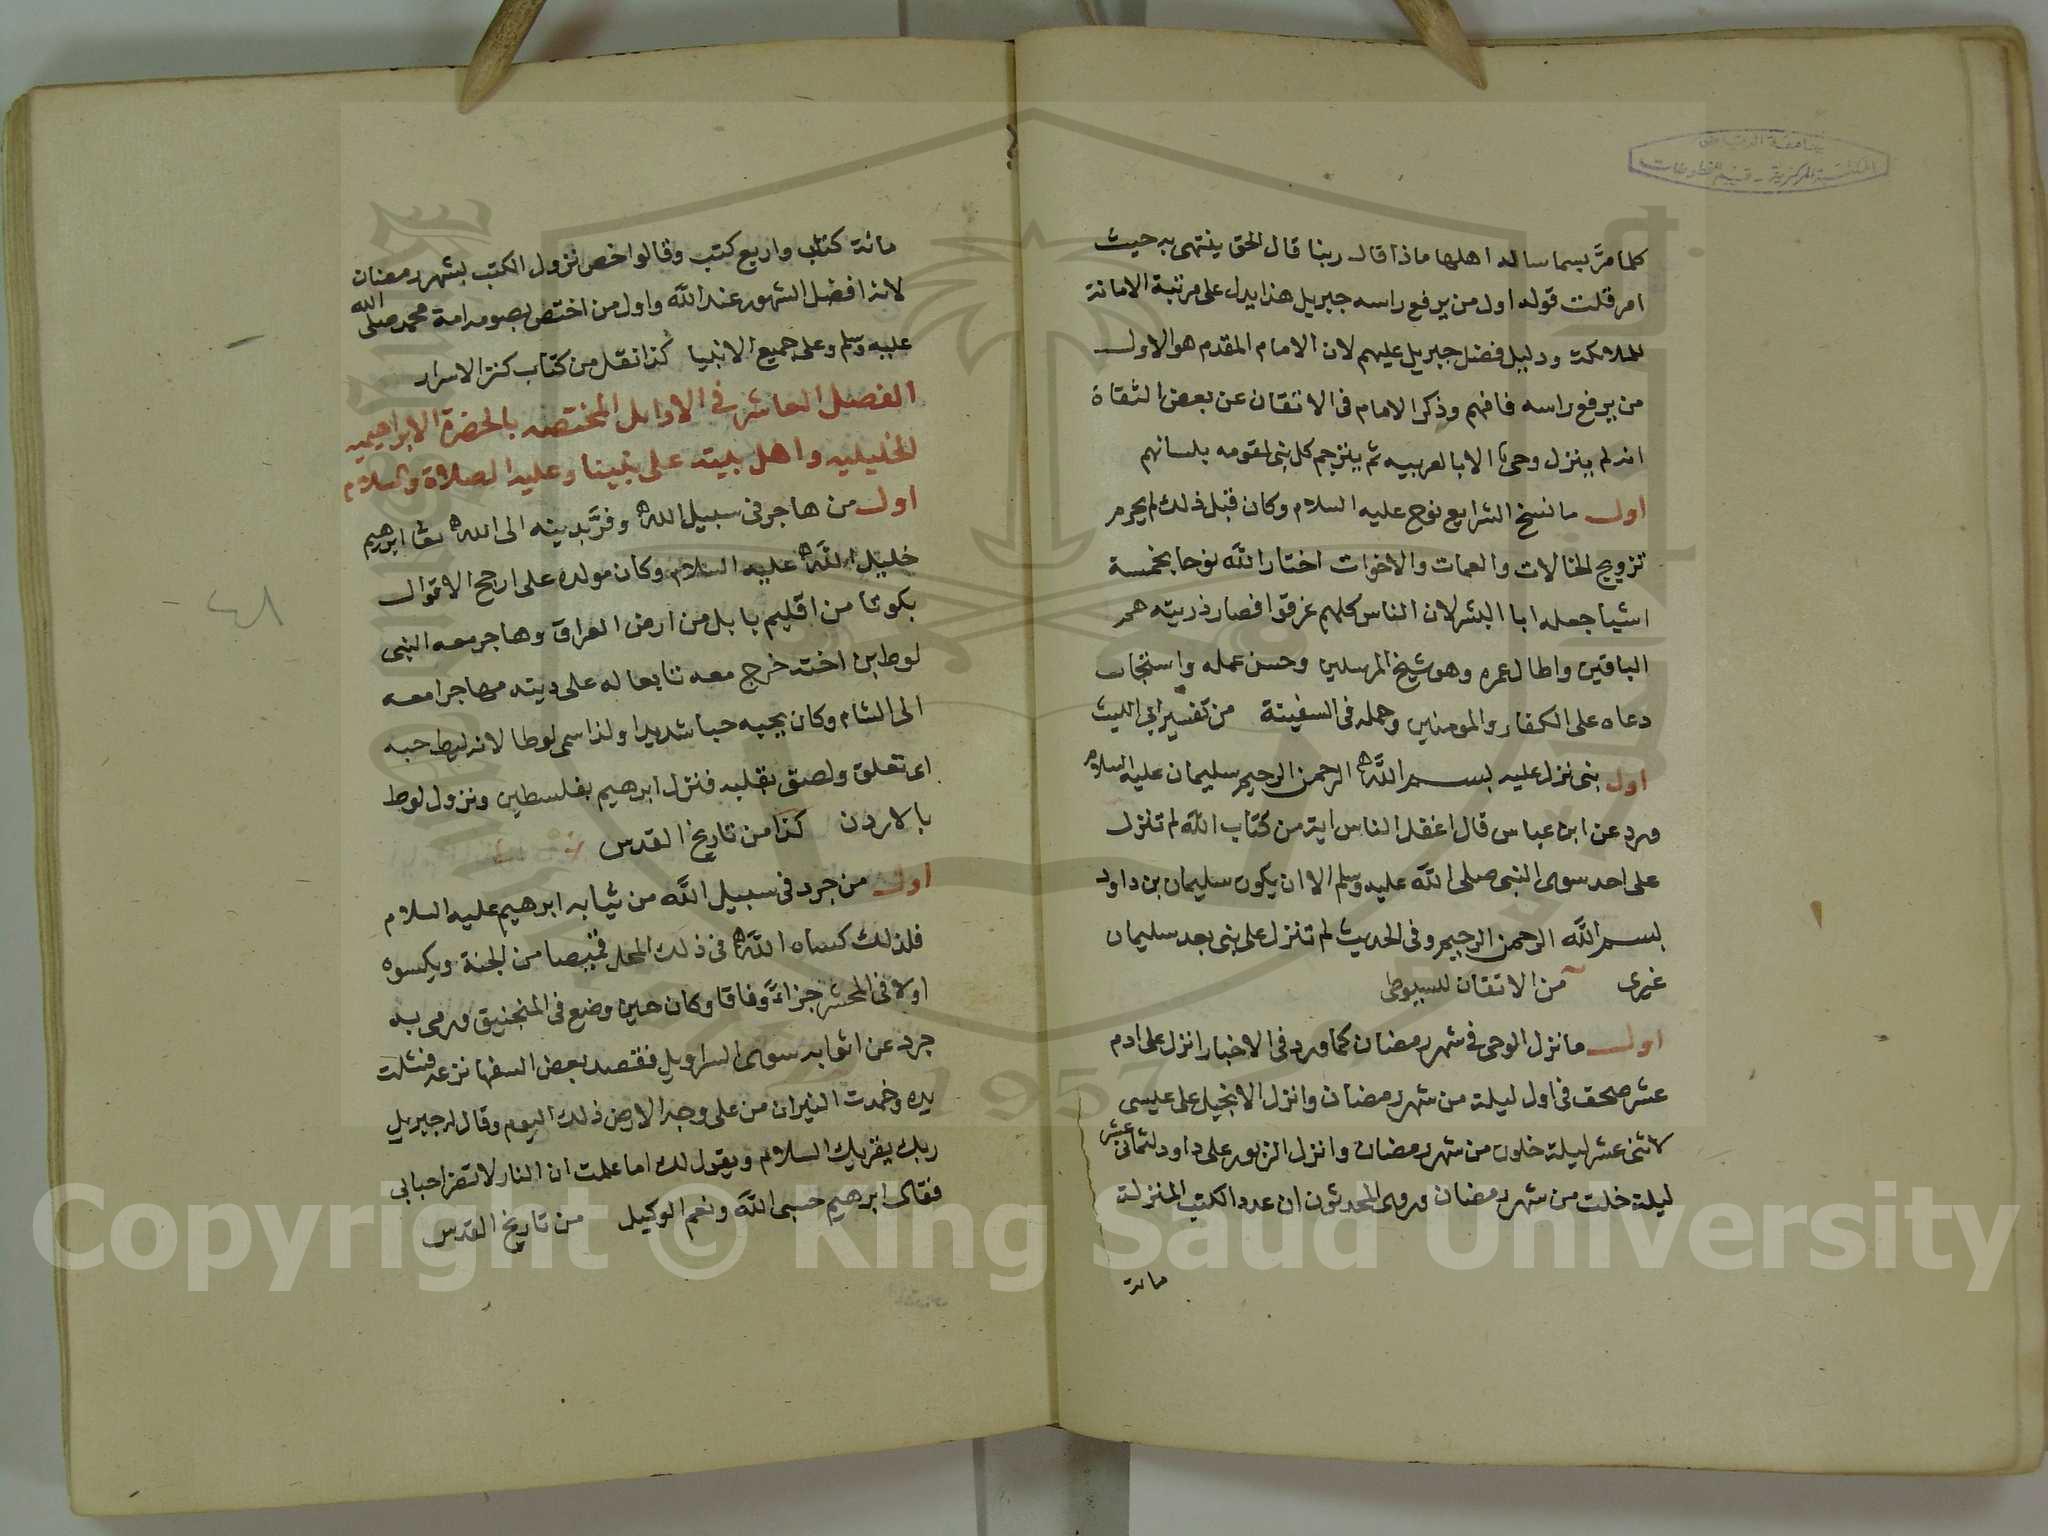 جامعة الرياض
المكتبة المركزية - قسم المخطوطات
كلما مرَّ بسما ساله اهلها ماذا قال ربنا قال الحق ينتهى به حيث
امر قلت قوله اول من يرفع راسه جبريل هذا يدل على مرتبة الامانة
للملائكة ودليل فضل جبريل عليهم لان الامام المقدم هو الاول
من يرفع راسه فافهم وذكر الامام فى الاتقان عن بعض الثقاة
انه لم ينزل وحى الا بالعربيه ثم يترجم كل نبى لقومه بلسانهم
اول ما نسخ الشرايع نوح عليه السلام وكان قبل ذلك لم يحرم
تزويج الخالات والعمات والاخوات اختار الله نوحا بخمسة
اشيا جعله ابا البشر لان الناس كلهم غرقوا فصار ذريته هم
الباقين واطال عمره وهو شيخ المرسلين وحسن عمله واستجاب
دعاه على الكفار والمومنين وحمله فى السفينة من تفسير ابى الليث
اول نبى نزل عليه بسم الله الرحمن الرحيم سليمان عليه السلام
ورد عن ابن عباس قال اغفل الناس اية من كتاب الله لم تنزل
على احد سوى النبى صلى الله عليه وسلم الا ان يكون سليمان بن داود
بسم الله الرحمن الرحيم وفى الحديث لم تنزل على نبى بعد سليمان
غيرى من الاتقان للسيوطى
اول ما نزل الوحى فى شهر رمضان كما ورد فى الاخبار انزل على ادم
عشر صحف فى اول ليلة من شهر رمضان وانزل الانجيل على عيسى
لاثنى عشر ليلة خلون من شهر رمضان وانزل الزبور على داود لثمانى عشر
ليلة خلت من شهر رمضان وروى المحدثون ان عدد الكتب المنزلة
مائة
مائة كتاب واربع كتب وقالوا خص نزول الكتب بشهر رمضان
لانه افضل الشهور عند الله واول من اختص بصومه امة محمد صلى الله
عليه وسلم وعلى جميع الانبيا كذا نقل من كتاب كنز الاسرار
الفصل العاشر فى الاوايل المختصه بالحضرة الابراهيميه
الخليليه واهل بيته على نبينا وعليه الصلاة والسلام
اول من هاجر فى سبيل الله وفرَّ بدينه الى الله ابرهيم
خليل الله عليه السلام وكان مولده على ارجح الاقوال
بكوثا من اقليم بابل من ارض العراق وهاجر معه النبى
لوط ابن اخته خرج معه تابعا له على ديته مهاجرا معه
الى الشام وكان يحبه حبا شديدا ولذا سمى لوطا لانه ليط حبه
اى تعلق ولصق بقلبه فنزل ابرهيم بفلسطين ونزول لوط
بالاردن كذا من تاريخ القدس
اول من جرد فى سبيل الله من ثيابه ابرهيم عليه السلام
فلذلك كساه الله فى ذلك المحل قميصا من الجنة ويكسوه
اولا فى المحشر جزاءً وفاقا وكان حين وضع فى المنجنيق ورمى به
جرد عن اثوابه سوى السراويل فقصد بعض السفها نزعه فشلت
يده وخمدت النيران من على وجه الارض ذلك اليوم وقال له جبريل
ربك يقريك السلام ويقول لك اما علمت ان النار لا تضر احبابى
فقال ابرهيم حسبى الله ونعم الوكيل من تاريخ القدس
٤٨
1957
Copyright © King Saud University